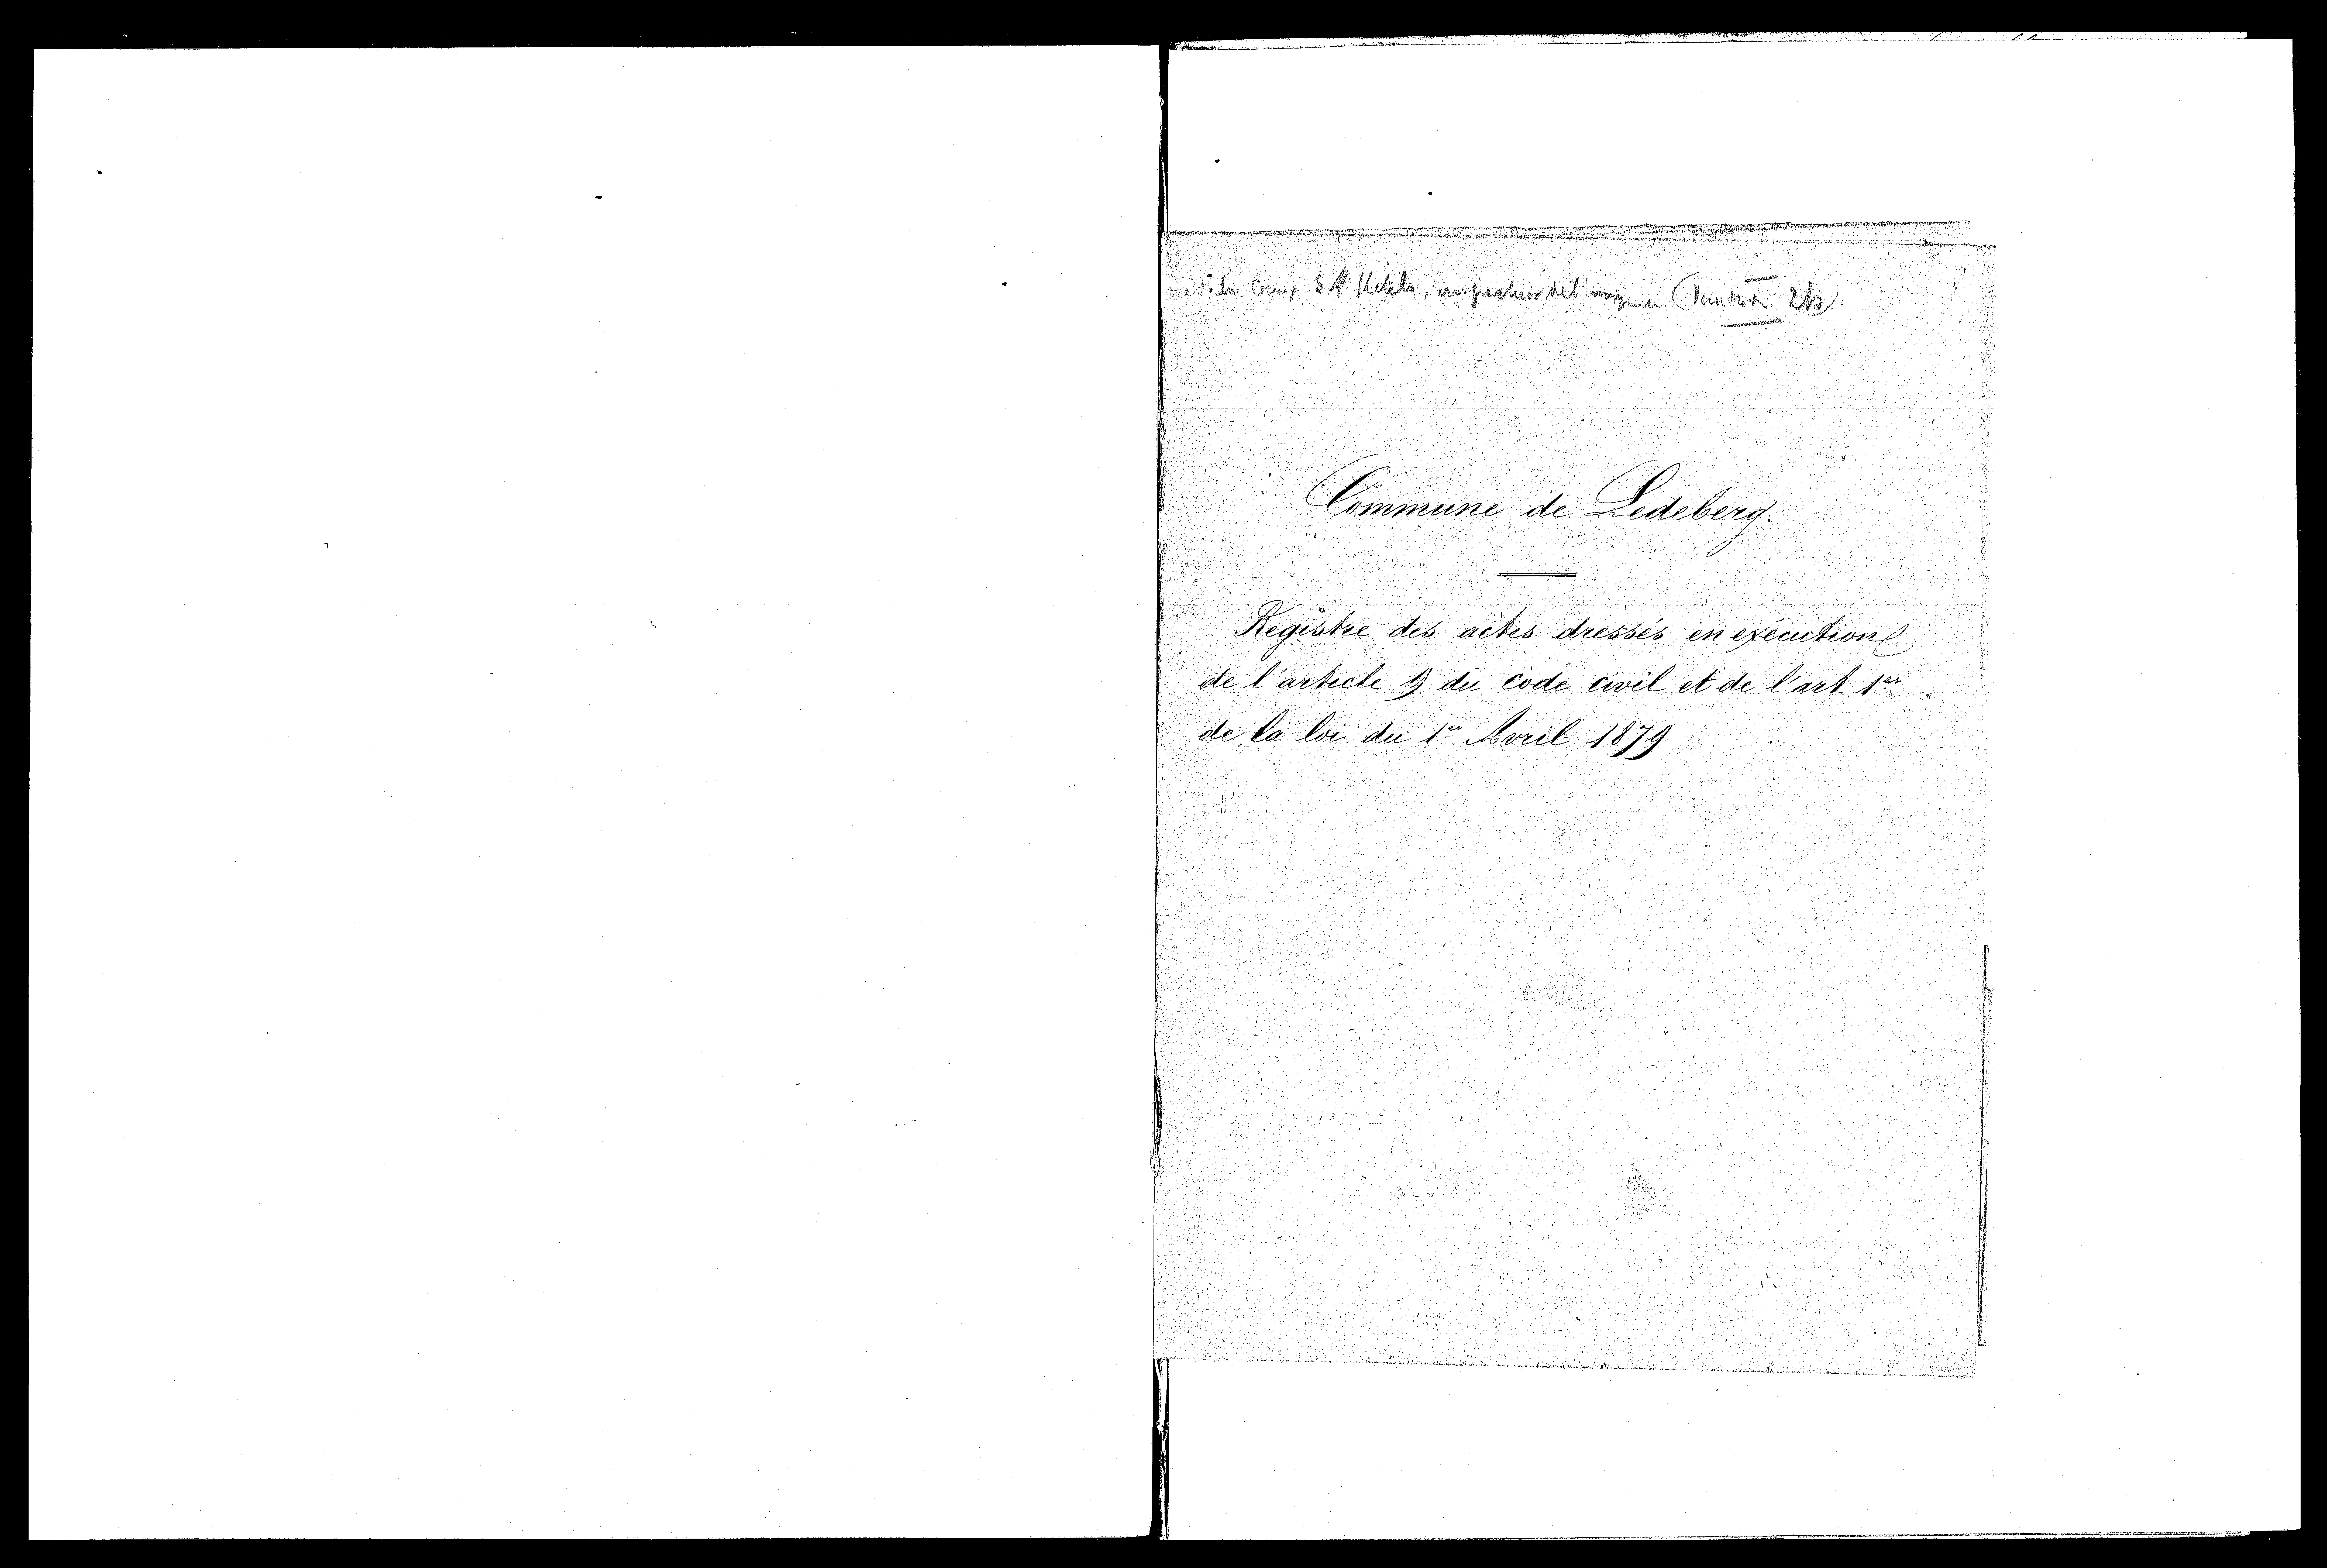 Ketels, inspecteur de l'
Commune de Ledeberg.
Registre des actes dressés en exécution
de l'article 9 du code civil et de l'art. 1er
de la loi du 1er Avril 1879